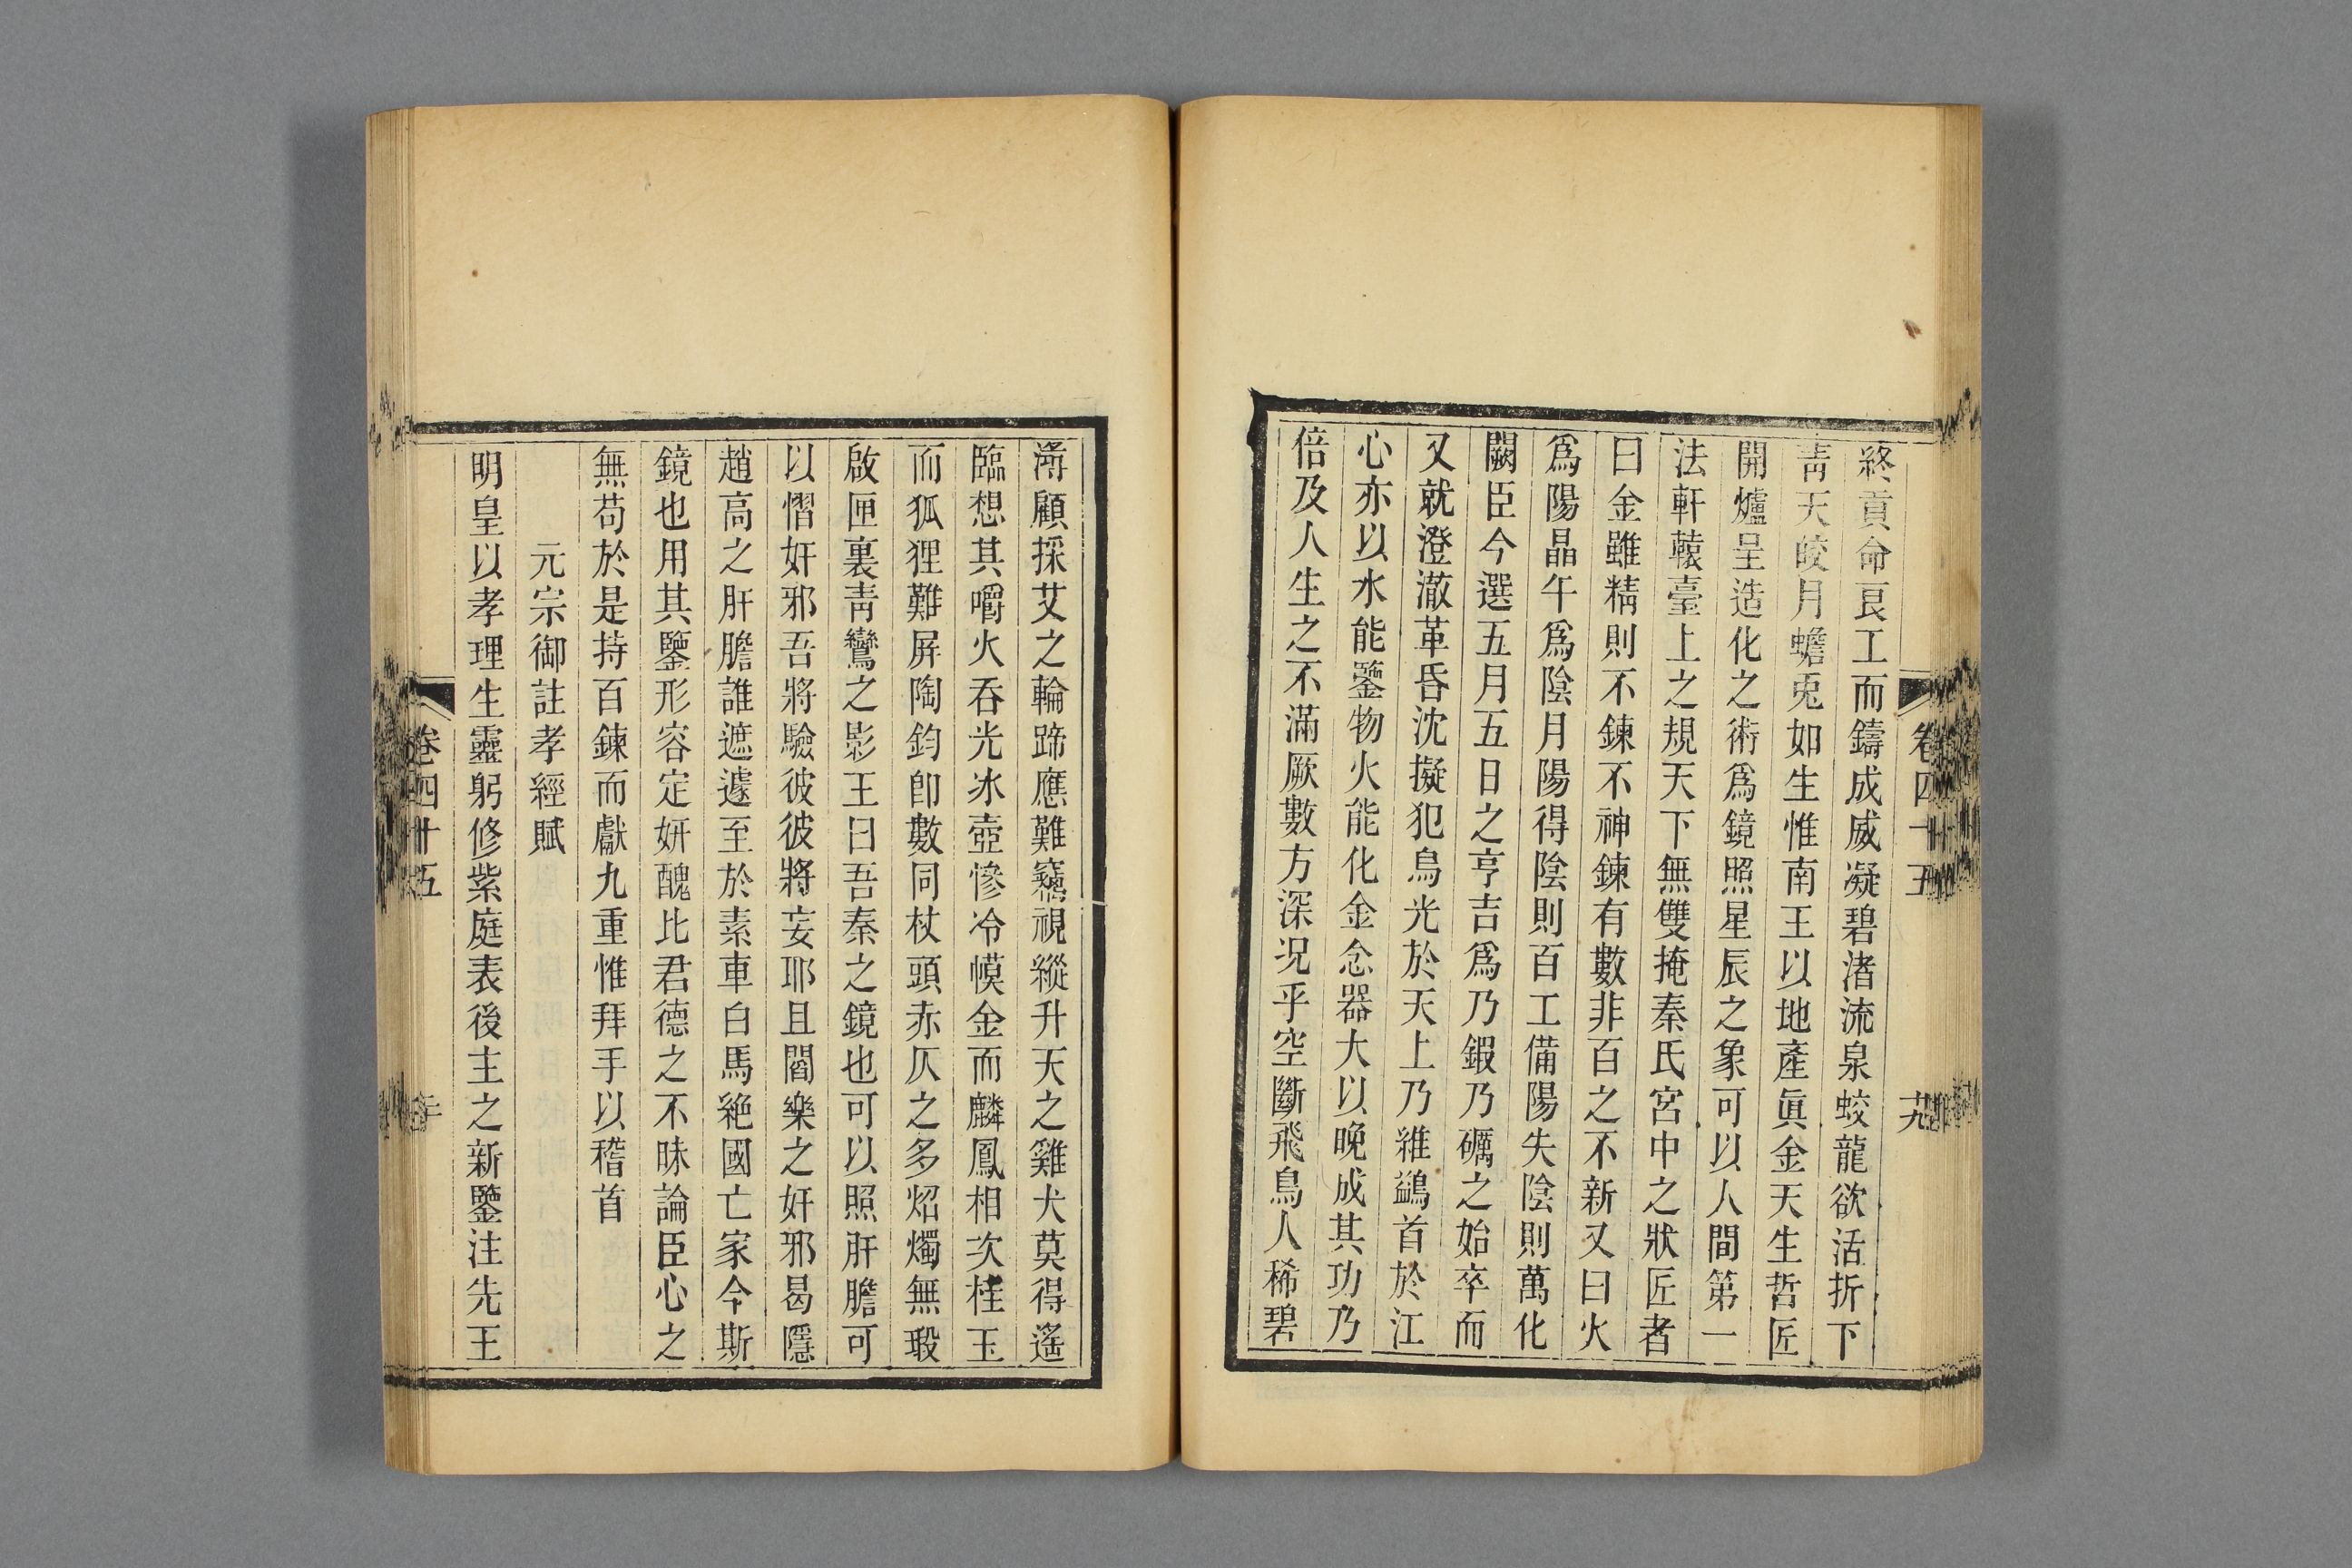 卷四十五
十九
終貢命良工而鑄成威凝碧渚流泉蛟龍欲活折下
靑天皎月蟾兎如生惟南王以地產眞金天生哲匠
開爐呈造化之術爲鏡照星辰之象可以人間第一
法軒轅臺上之規天下無雙掩秦氏宮中之狀匠者
曰金雖精則不鍊不神鍊有數非百之不新又曰火
爲陽晶午爲陰月陽得陰則百工備陽失陰則萬化
闕臣今選五月五日之亨吉爲乃鍜乃礪之始卒而
又就澄澈革昏沈擬犯烏光於天上乃維鷁首於江
心亦以水能鑒物火能化金念器大以晚成其功乃
倍及人生之不滿厥數方深况乎空斷飛鳥人稀碧
潯顧採艾之輪蹄應難竊視縱升天之雞犬莫得遙
臨想其嚼火吞光冰壺慘冷幙金而麟鳳相次桂玉
而狐狸難屏陶鈞卽數同杖頭赤仄之多炤燭無瑕
啟匣裏靑鸞之影王曰吾秦之鏡也可以照肝膽可
以慴奸邪吾將驗彼彼將妄耶且閻樂之奸邪曷隱
趙高之肝膽誰遮遽至於素車白馬絶國亡家今斯
鏡也用其鑒形容定妍醜比君德之不昧論臣心之
無苟於是持百鍊而獻九重惟拜手以稽首
元宗御註孝經賦
明皇以孝理生靈躬修紫庭表後主之新鑒注先王
卷四十五
二十